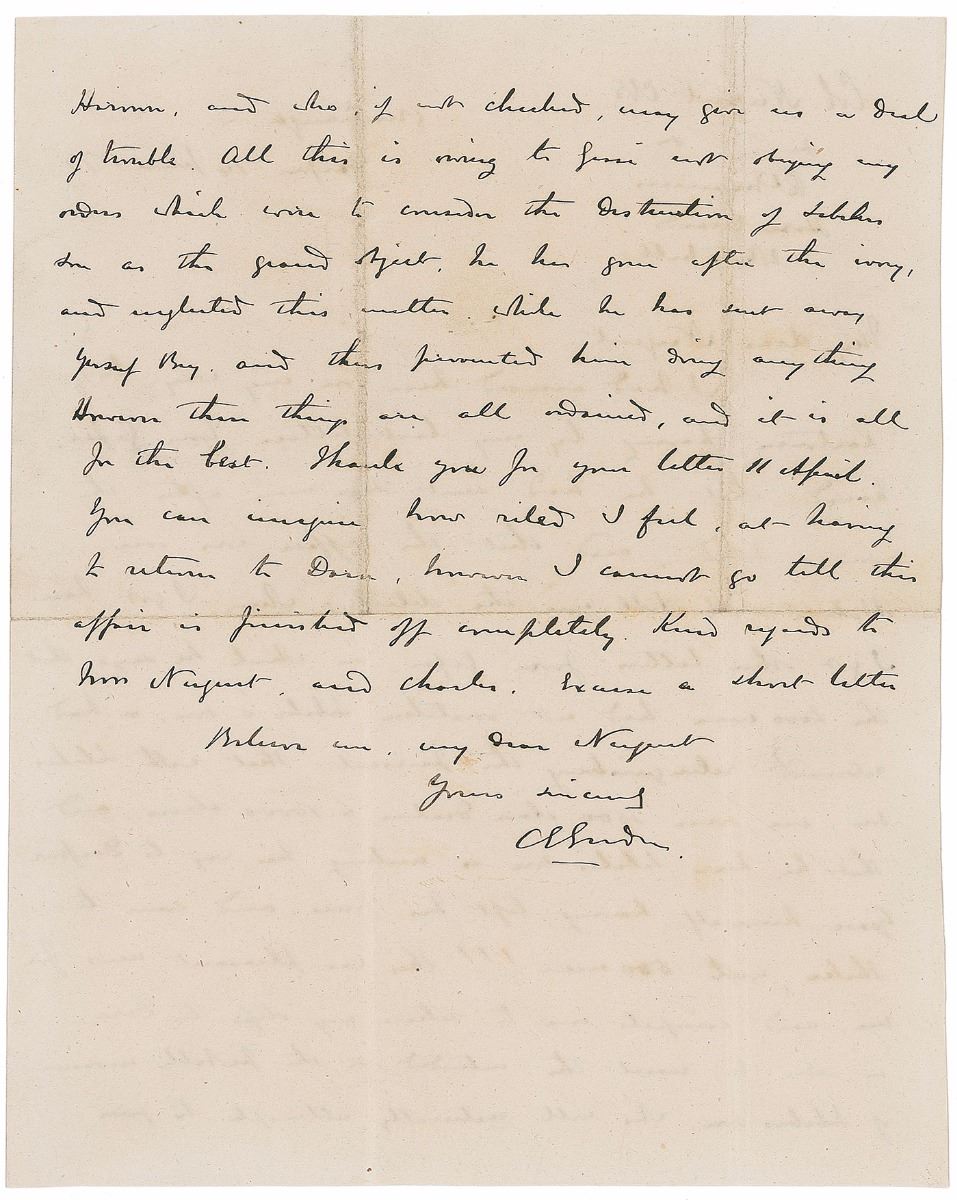 Haroun, and who, if not checked, may give us a deal
of trouble. All this is owing to Gessi not obeying my
orders which were to consider the destruction of Sebehrs
son as the grand object, he has gone after the ivory,
and neglected this matter while he has sent away
Yussuf Bey, and thus prevented him doing anything
However these things are all ordained, and it is all
for the best. Thank you for your letter 11 April.
You can imagine how riled I feel, at having
to return to Dara, however I cannot go till this
affair is finished off completely. Kind regards to
Nugent, and Charles. Excuse a short letter
Believe me, my dear Nugent
Yours sincerely
CGGordon.